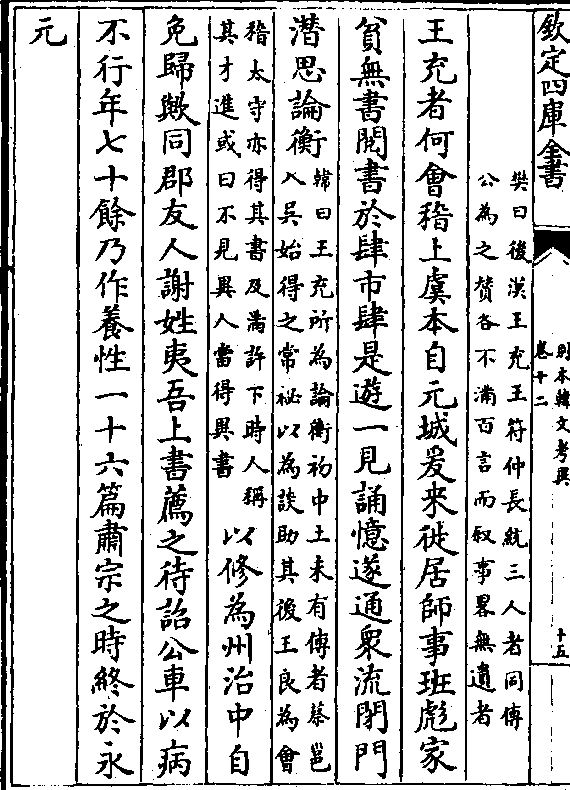 欽定四庫全書
別本韓文考異
卷十二
十五
樊曰後漢王充王符仲長統三人者同傳
公為之贊各不滿百言而叙事畧無遺者
王充者何會稽上虞本自元城爰来徙居師事班彪家
貧無書閲書於肆市肆是遊一見誦憶遂通衆流閉門
潜思論衡
韓曰王充所為論衡初中土未有傳者蔡邕
入吳始得之常祕以為談助其後王良為會
稽太守亦得其書及還許下時人稱
其才進或曰不見異人當得異書
以修為州治中自
免歸歟同郡友人謝姓夷吾上書薦之待詔公車以病
不行年七十餘乃作養性一十六篇肅宗之時終於永
元